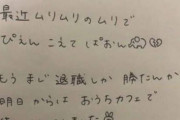 最近ムリムリのムリで
ぴえんこえてぱおん
もうまじ退職しか勝たんか
明日からはおうちカフェで